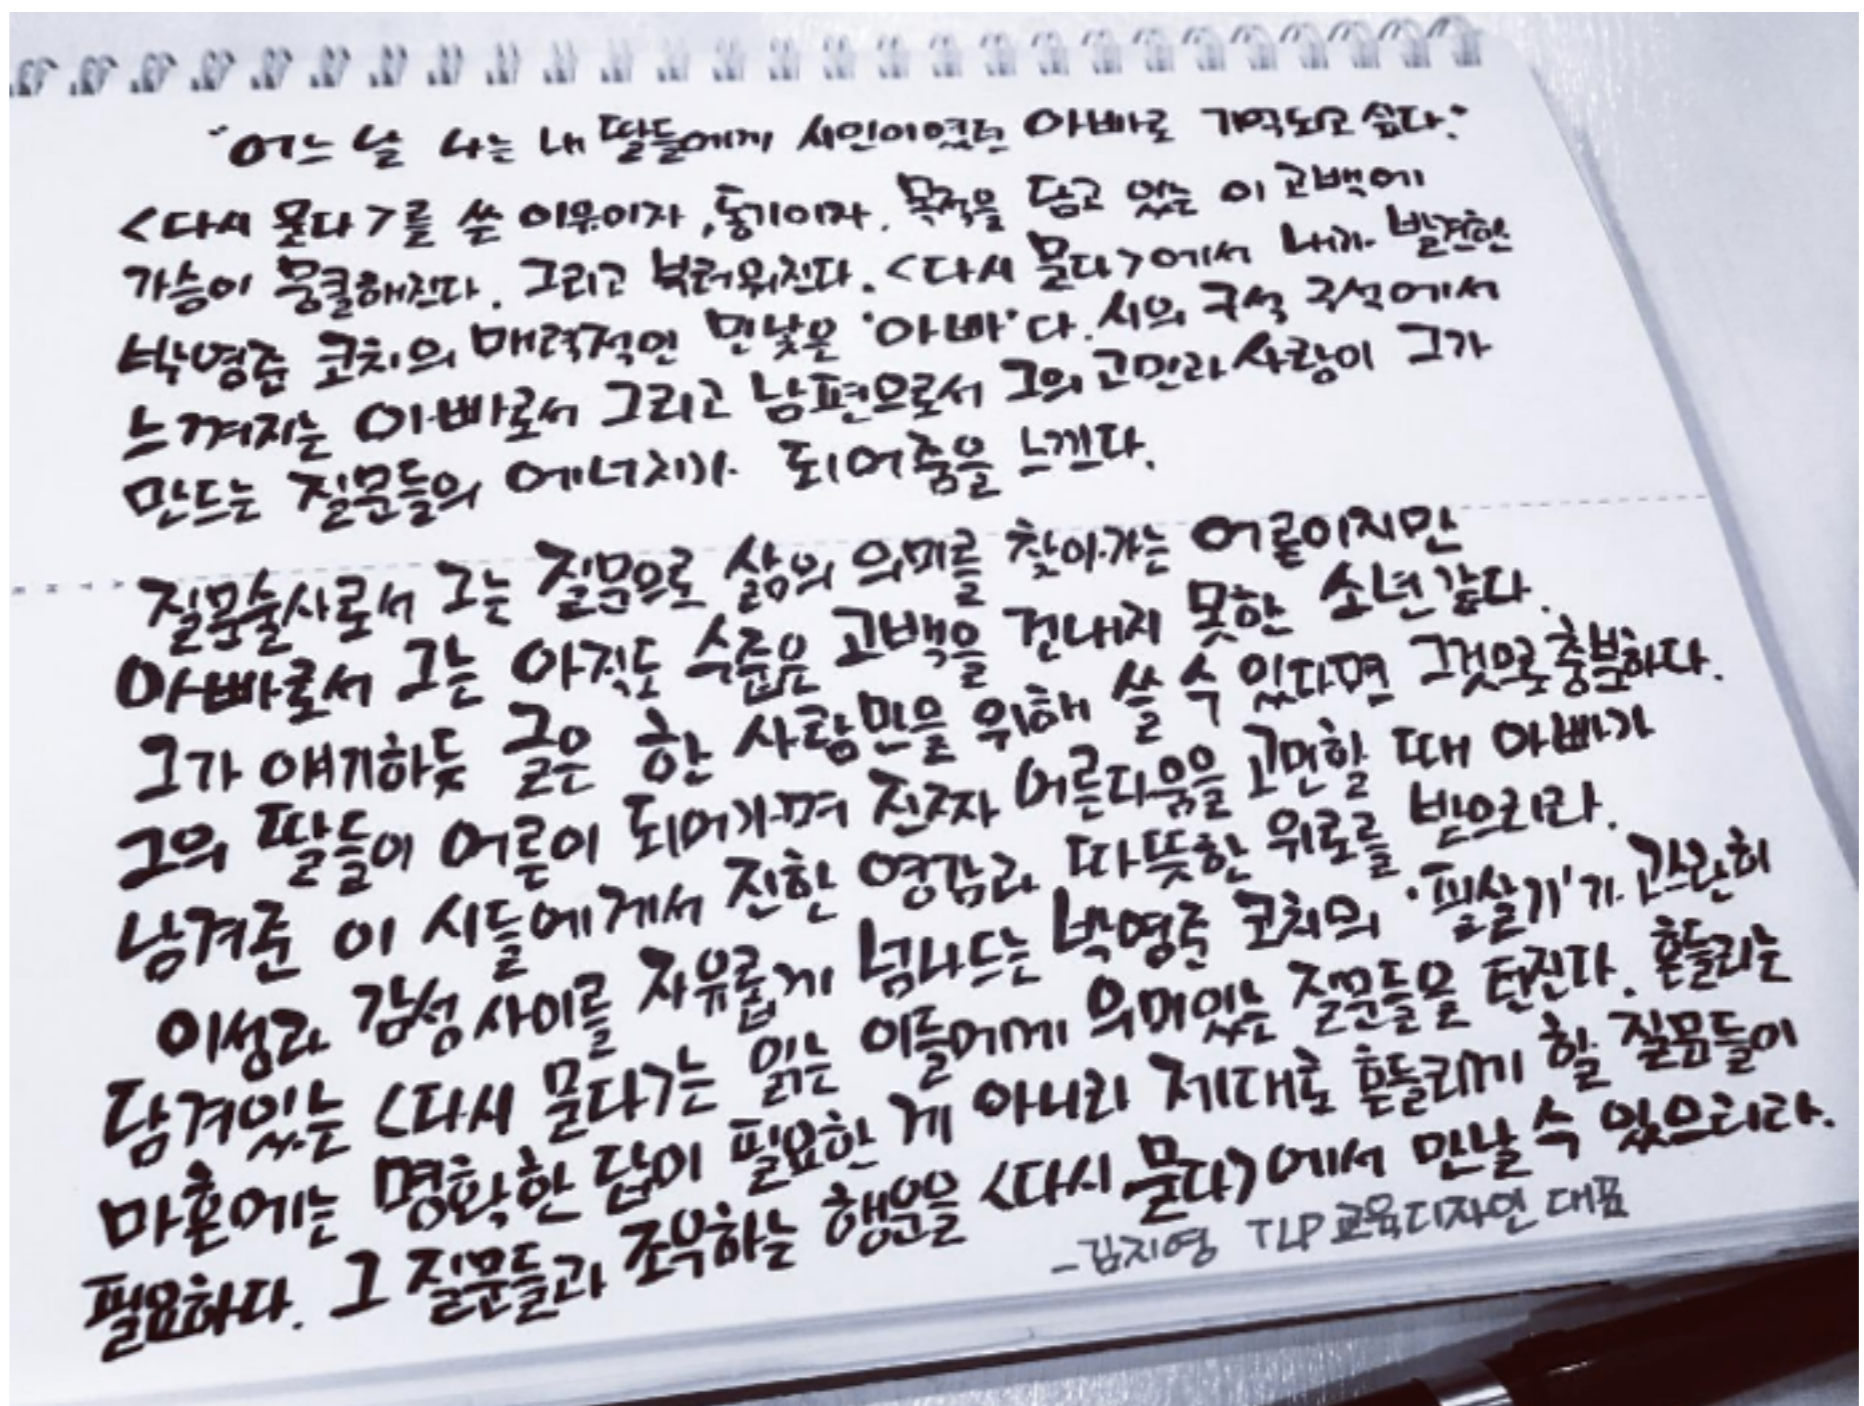 "어느 날 나는 내 딸들에게 시인이었던 아빠로 기억되고 싶다."
<다시 묻다>를 쓴 이유이자, 동기이자, 목적을 담고 있는 이 고백에
가슴이 뭉클해진다. 그리고 부러워진다. <다시 묻다>에서 내가 발견한
박영준 코치의 매력적인 민낯은 '아빠'다. 시의 구석 구석에서
느껴지는 아빠로서 그리고 남편으로서 그의 고민과 사랑이 그가
만드는 질문들의 에너지가 되어줌을 느낀다.
질문술사로서 그는 질문으로 삶의 의미를 찾아가는 어른이지만
아빠로서 그는 아직도 수줍은 고백을 건내지 못한 소년같다.
그가 얘기하듯 글은 한 사람만을 위해 쓸 수 있다면 그것으로 충분하다.
그의 딸들이 어른이 되어가며 진짜 어른다움을 고민할 때 아빠가
남겨준 이 시들에게서 진한 영감과 따뜻한 위로를 받으리라.
이성과 감성 사이를 자유롭게 넘나드는 박영준 코치의 '필살기'가 고스란히
담겨있는 <다시 묻다>는 읽는 이들에게 의미있는 질문들을 던진다. 흔들리는
마흔에는 명확한 답이 필요한 게 아니라 제대로 흔들리게 할 질문들이
필요하다. 그 질문들과 조우하는 행운을 <다시 묻다>에서 만날 수 있으리라.
-김지영 TLP교육디자인 대표